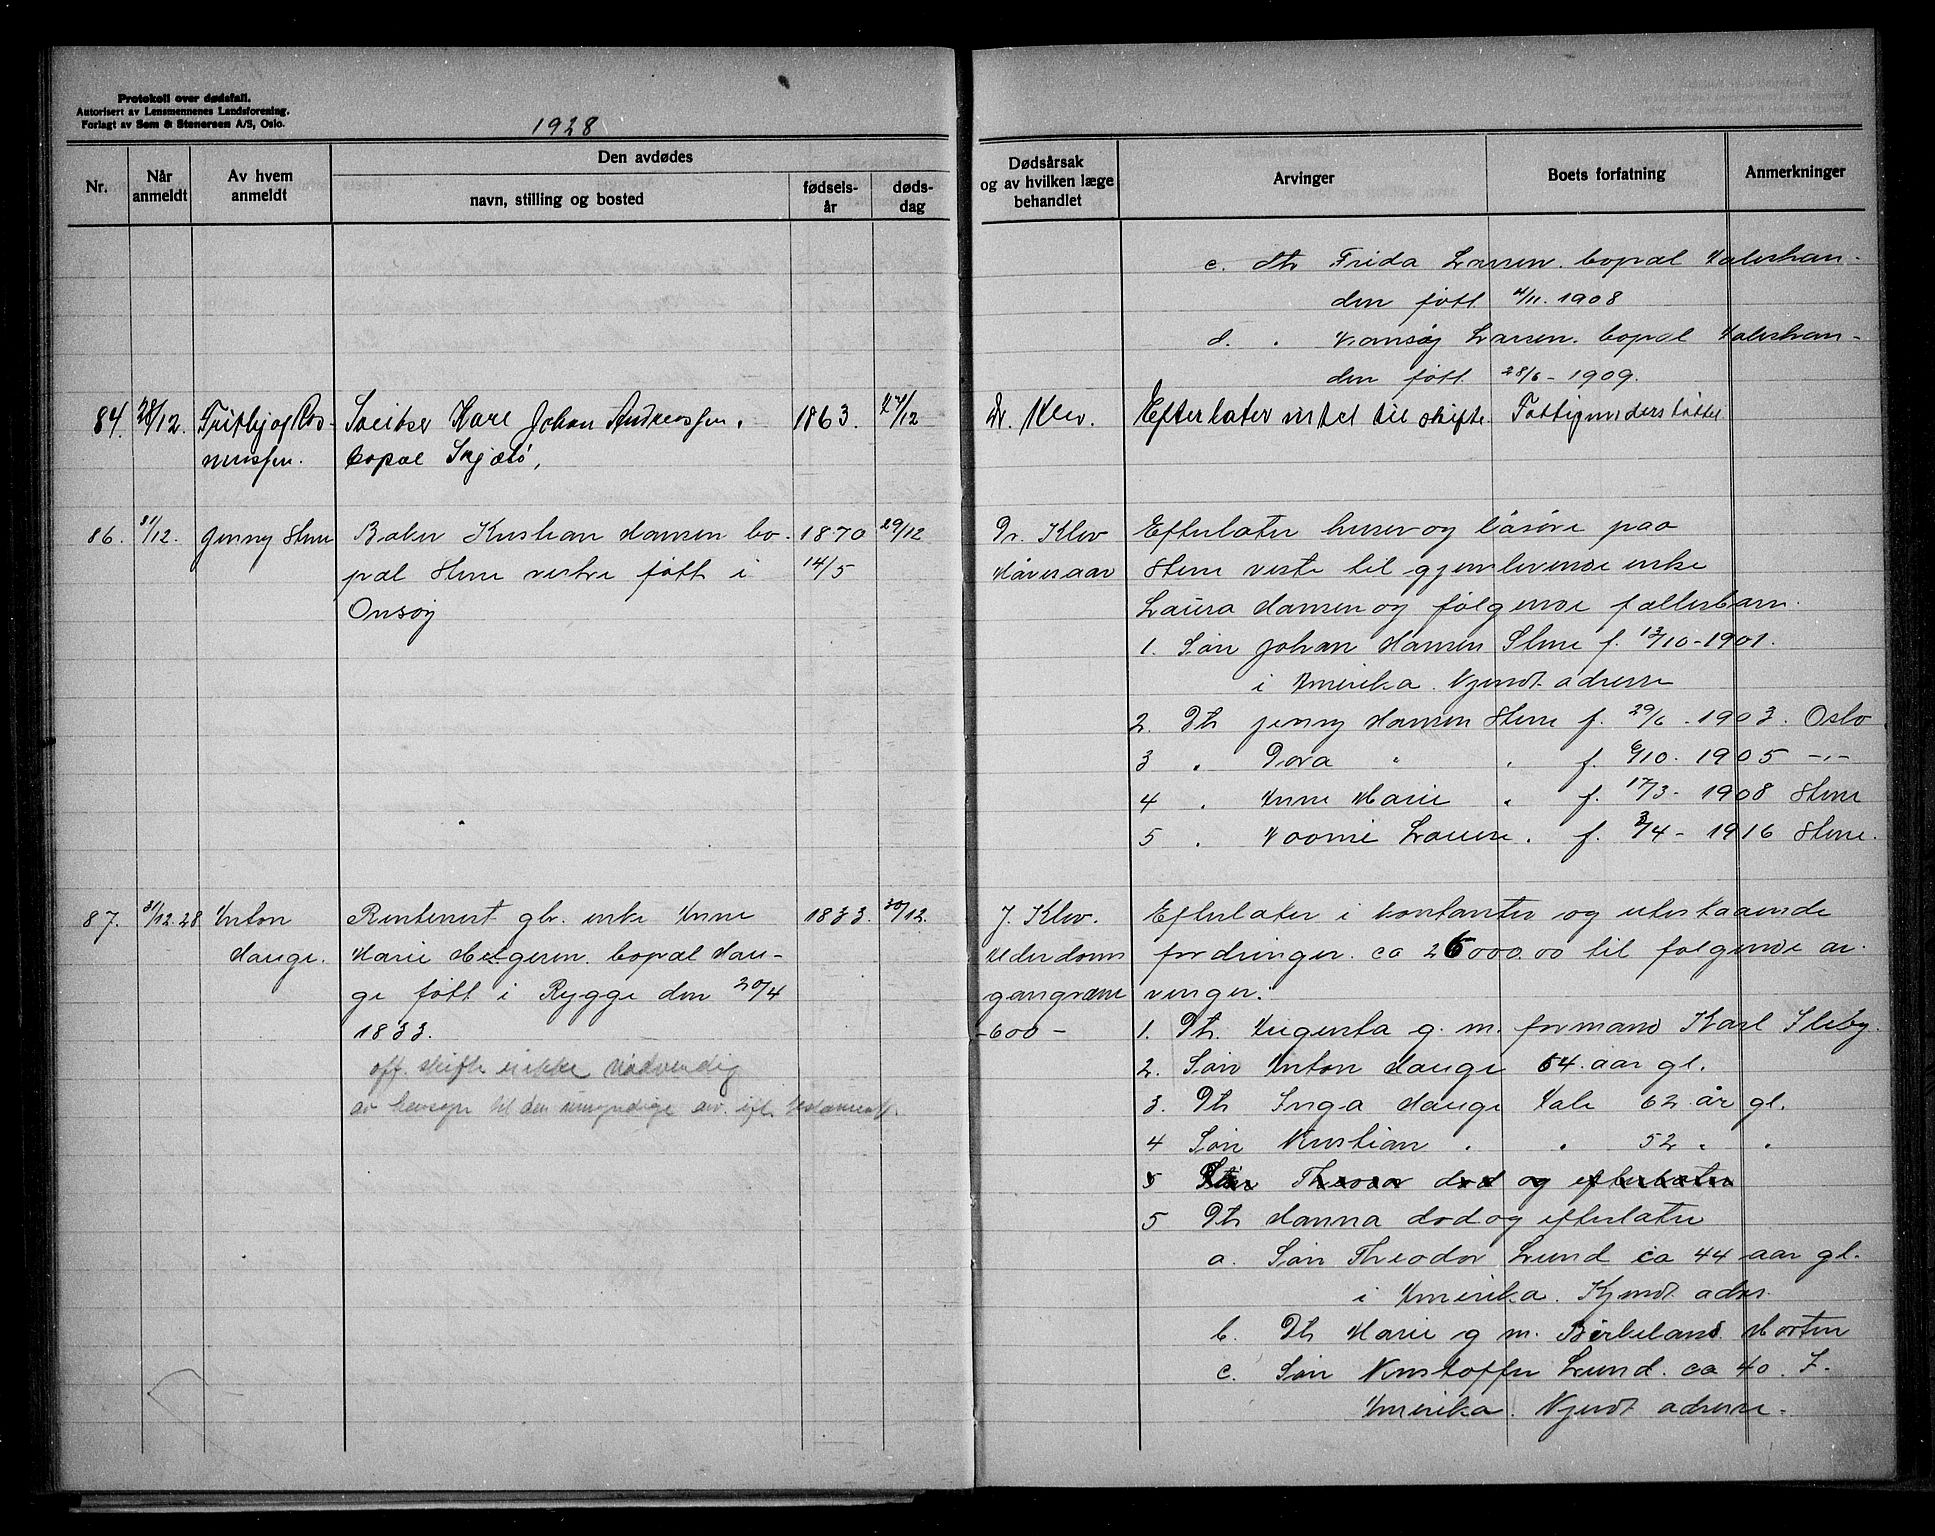 Protokoll over dødsfall.
Autorisert av Lensmennenes Landsforening.
Forlagt av Sem & Stenersen A/S, Oslo.
1928
Nr.
Når anmeldt
Av hvem anmeldt
Den avdødes
navn, stilling og bosted
fødsels-år
døds-dag
Dødsårsak og av hvilken læge behandlet
Arvinger
Boets forfatning
Anmerkninger
c. dtr Frida Larsen. bopæl
den født 4/11. 1908
d. " Larsen. bopæl
den født 28/6 - 1909.
84. 28/12. Johan Andreassen. 1863. 27/12 Dr. Klev. Efterlater intet til skifte. Fattigunderstøttet
bopæl
86. 31/12. Jenny Stene Baker Kristian Hansen bo- 1870 29/12 Dr. Klev Efterlater huser og løsøre paa
pæl Stene vestre født i 14/5 Stene vestre til gjenlevende enke
Onsøy Laura Hansen og følgende fællesbarn.
1. Søn Johan Hansen Stene f. 13/10 - 1901.
i Amerika. Kjendt adresse
2. Dtr Jenny Hansen Stene f. 29/6 - 1903. Oslo
3 " Dora " " f. 6/10. 1905 -"-
4 " Anne Marie " f. 17/3 - 1908 Stene
5 " Laura " f. 3/4 - 1916 Stene.
87. 31/12.28 Anton Rentenist gbr. enke Anne 1833. 30/12. J. Klev. Efterlater i kontanter og utestaaende
Hauge. Marie Helgesen. bopæl Hau- Alderdoms fordringer. ca 26000.00 til følgende ar-
ge født i Rygge den 20/4 gangræne vinger:
1833. -600- 1. Dtr. Augusta g. m. formand Karl
off. skifte er ikke nødvendig 2. Søn Anton Hauge 64. aar gl.
til den umyndige arv. ift. testament. 3. Dtr Inga Hauge 62 år gl.
4 Søn Kristian " " 52 " "
5 Søn Theodor død og efterlater
5 Dtr Hanna død og efterlater
a. Søn Theodor Lund ca 44 aar gl.
i Amerika. Kjendt adres.
b. Dtr Marie g m. Birkeland Horten
c. Søn Kristoffer Lund. ca 40. I.
Amerika. Kjendt adresse.